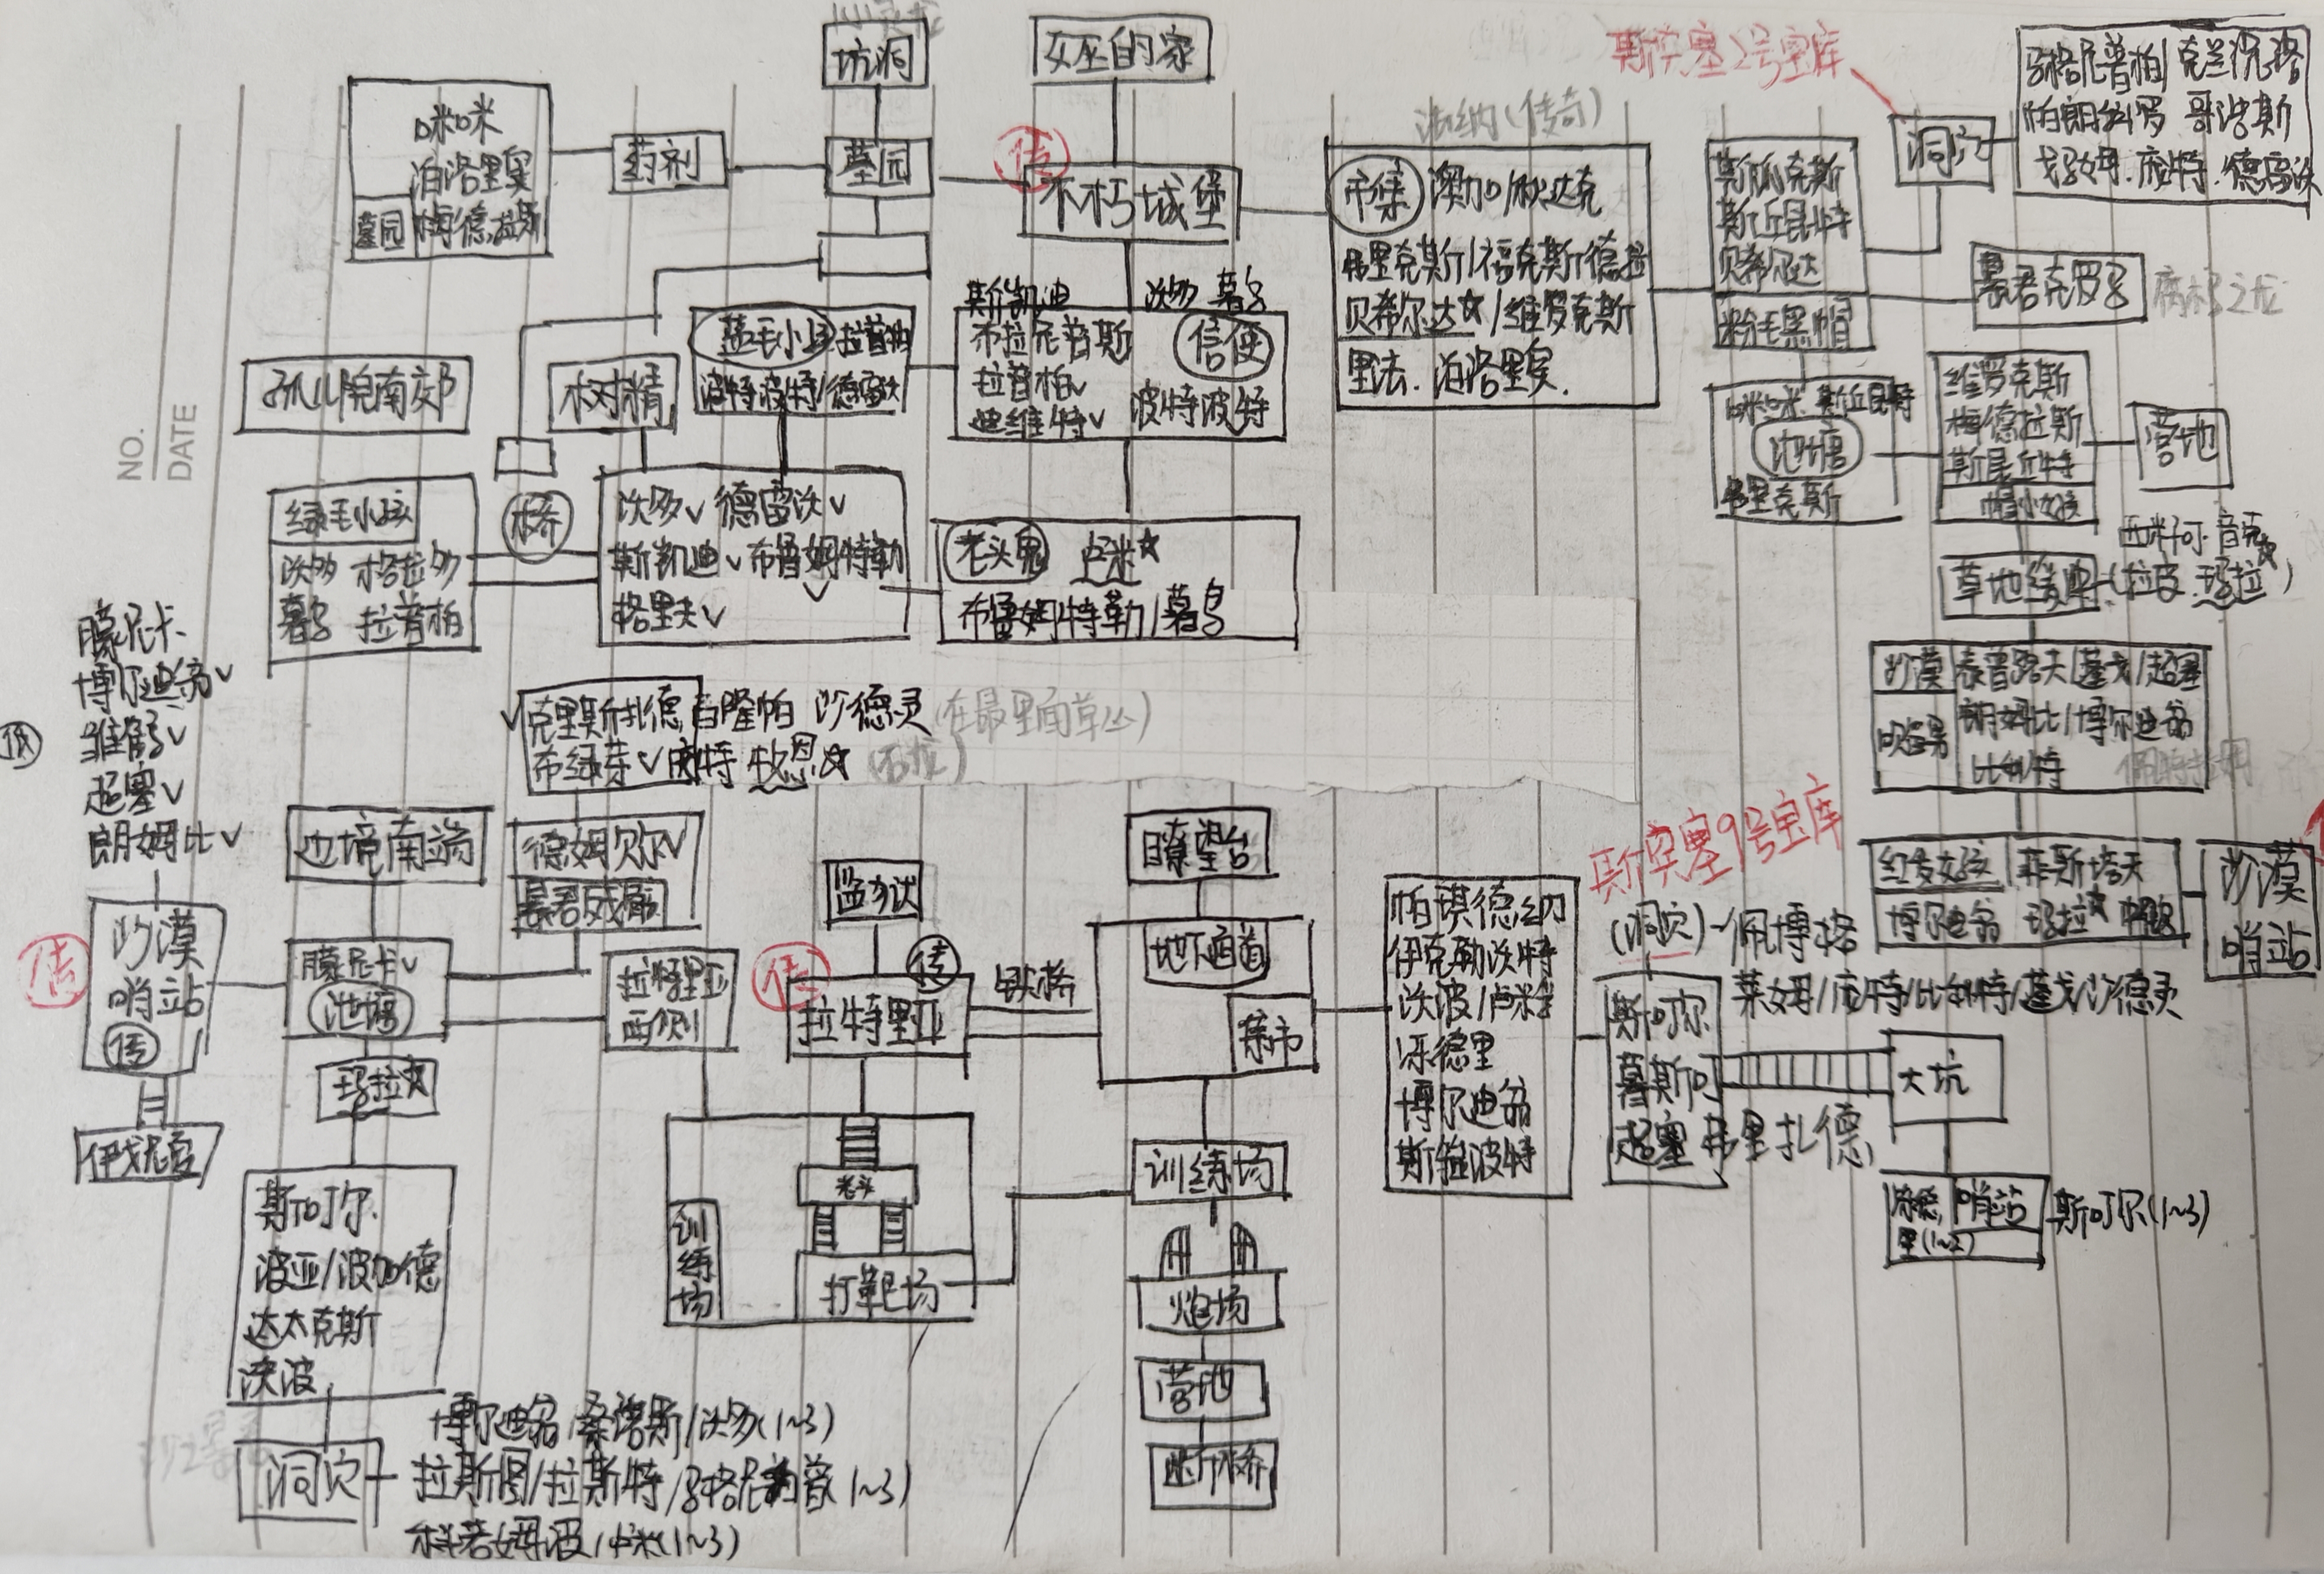 坑洞
女巫的家
斯突塞2号宝库
咪咪
泊洛里实
梅德拉斯
墓园
药剂
墓园
传
不朽城堡
法纳(传奇)
市集 澳加/耿达克
弗里克斯/福克斯德拉
贝希尔达☆/维罗克斯
里法.泊洛里实.
斯派克斯
斯丘昆特
贝希尔达
粉毛黑帽
洞穴
马格尼普柏/克兰沉洛
帕朗拉罗 哥浩斯
庞特.德雷沃
暴君克罗多
腐朽之龙
孤儿院南郊
树精
蓝毛小孩 拉普柏
波特波特/德雷沃
斯凯迪
布拉尼普斯
拉普柏✓
迪维特✓
沃多 暮乌
信使
波特波特
咪咪.斯丘昆特
池塘
弗里克斯
维罗克斯
梅德拉斯
斯昆丘特
帽小孩
营地
绿毛小孩
沃多 格拉多
暮乌 拉普柏
桥
沃多✓ 德雷沃✓
斯凯迪✓布鲁姆特勒✓
格里夫✓
老头鬼 卢米☆
布鲁姆特勒/暮乌
西米可.音克☆
草地缓冲(拉皮.玛拉☆)
NO.
DATE
朦尼卡.
博尔迪翁✓
维舒✓
超塞✓
朗姆比✓
✓克里斯扎德 百隆帕 沙德灵(在最里面草丛)
布绿芽✓庞特 牧恩☆(石龙)
沙漠
哨男
泰普路夫/蓬戈/超塞
朗姆比/博尔迪翁
比利特
佩特拉
边境南端
德姆贝尔✓
暴君戏服
监狱
瞭望台
斯突塞9号宝库
红发女孩 菲斯塔天
博尔迪翁 玛拉☆
沙漠
哨站
传
沙漠
哨站
传
朦尼卡✓
池塘
拉特里亚
西侧
传
传
拉特里亚
铁桥
地下通道
菜市
帕琪德纳
伊克勒沃特
沃波/卢米
乐德里
博尔迪翁
斯维波特
(洞穴)~佩博格
莱姆/庞特/比利特/蓬戈/沙德灵
斯可尔
暮斯可
超塞 弗里扎德
大坑
玛拉☆
伊戈尼夏
老头
训练场
打靶场
训练场
哨站
里(1~2)
斯可尔(1~3)
斯可尔.
波亚/波加德
达太克斯
沃波
炮场
营地
断桥
洞穴
博尔迪翁/桑诺斯/沃多(1~3)
拉斯图/拉斯特/马格尼普(1~3)
科若姆波/卢米(1~3)